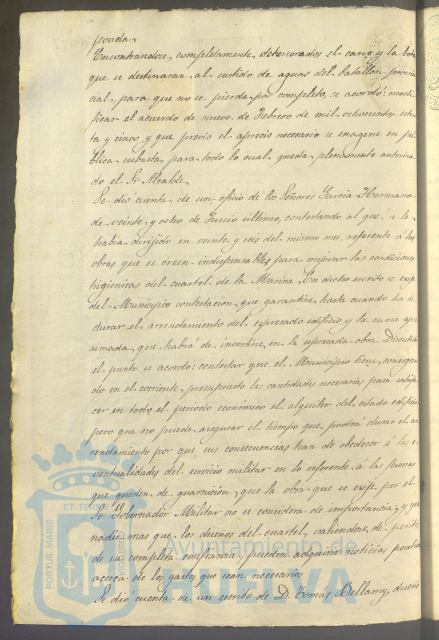 ponda.
Encontrandose, completamente, deteriorados el carro y la bota
que se destinaran al surtido de aguas del batallon provin-
cial, para que no se pierda por completo, se acordó: modi-
ficar el acuerdo de nueve de Febrero de mil ochocientos seten-
ta y cinco y que previo el aprecio necesario se enagene en pú-
blica subasta, para todo lo cual, queda plenamente autoriza-
do el Sr Alcalde.
Se dió cuenta de un oficio de los Señores Garcia Hermanos
de veinte y ocho de Junio último, contestando al que se le
habia dirijido en veinte y seis del mismo mes, referente á las
obras que se creen indispensables para mejorar las condiciones
higienicas del cuartel de la Marina. En dicho escrito se exije
del Municipio contestación, que garantice, hasta cuando ha de
durar el arrendamiento del espresado edificio y la suma apro-
simada, que habrá de invertirse en la espresada obra. Discutido
el punto se acordó: contestar que el Municipio tiene, consigna-
do en el corriente, presupuesto las cantidades necesarias para satisfa-
cer en todo el periodo económico el alquiler del citado edificio
pero que no puede asegurar el tiempo que podrá durar el ar-
rendamiento por que sus consecuencias han de obedecer á las e-
ventualidades del servicio militar en lo referente á las fuerzas
que queden de guarnición, que la obra que se exije por el
Sr Gobernador Militar no se considera de importancia, y que
nadie mas que los dueños del cuartel, valiendose, de peritos
de su completa confianza pueden adquirir noticias
acerca de los gastos que sean necesarios
Se dió cuenta de un escrito de D. Tomas Bellamy, dueño
PORTUS MARIS
ET TERRÆ
Ayuntamiento de
HUELVA